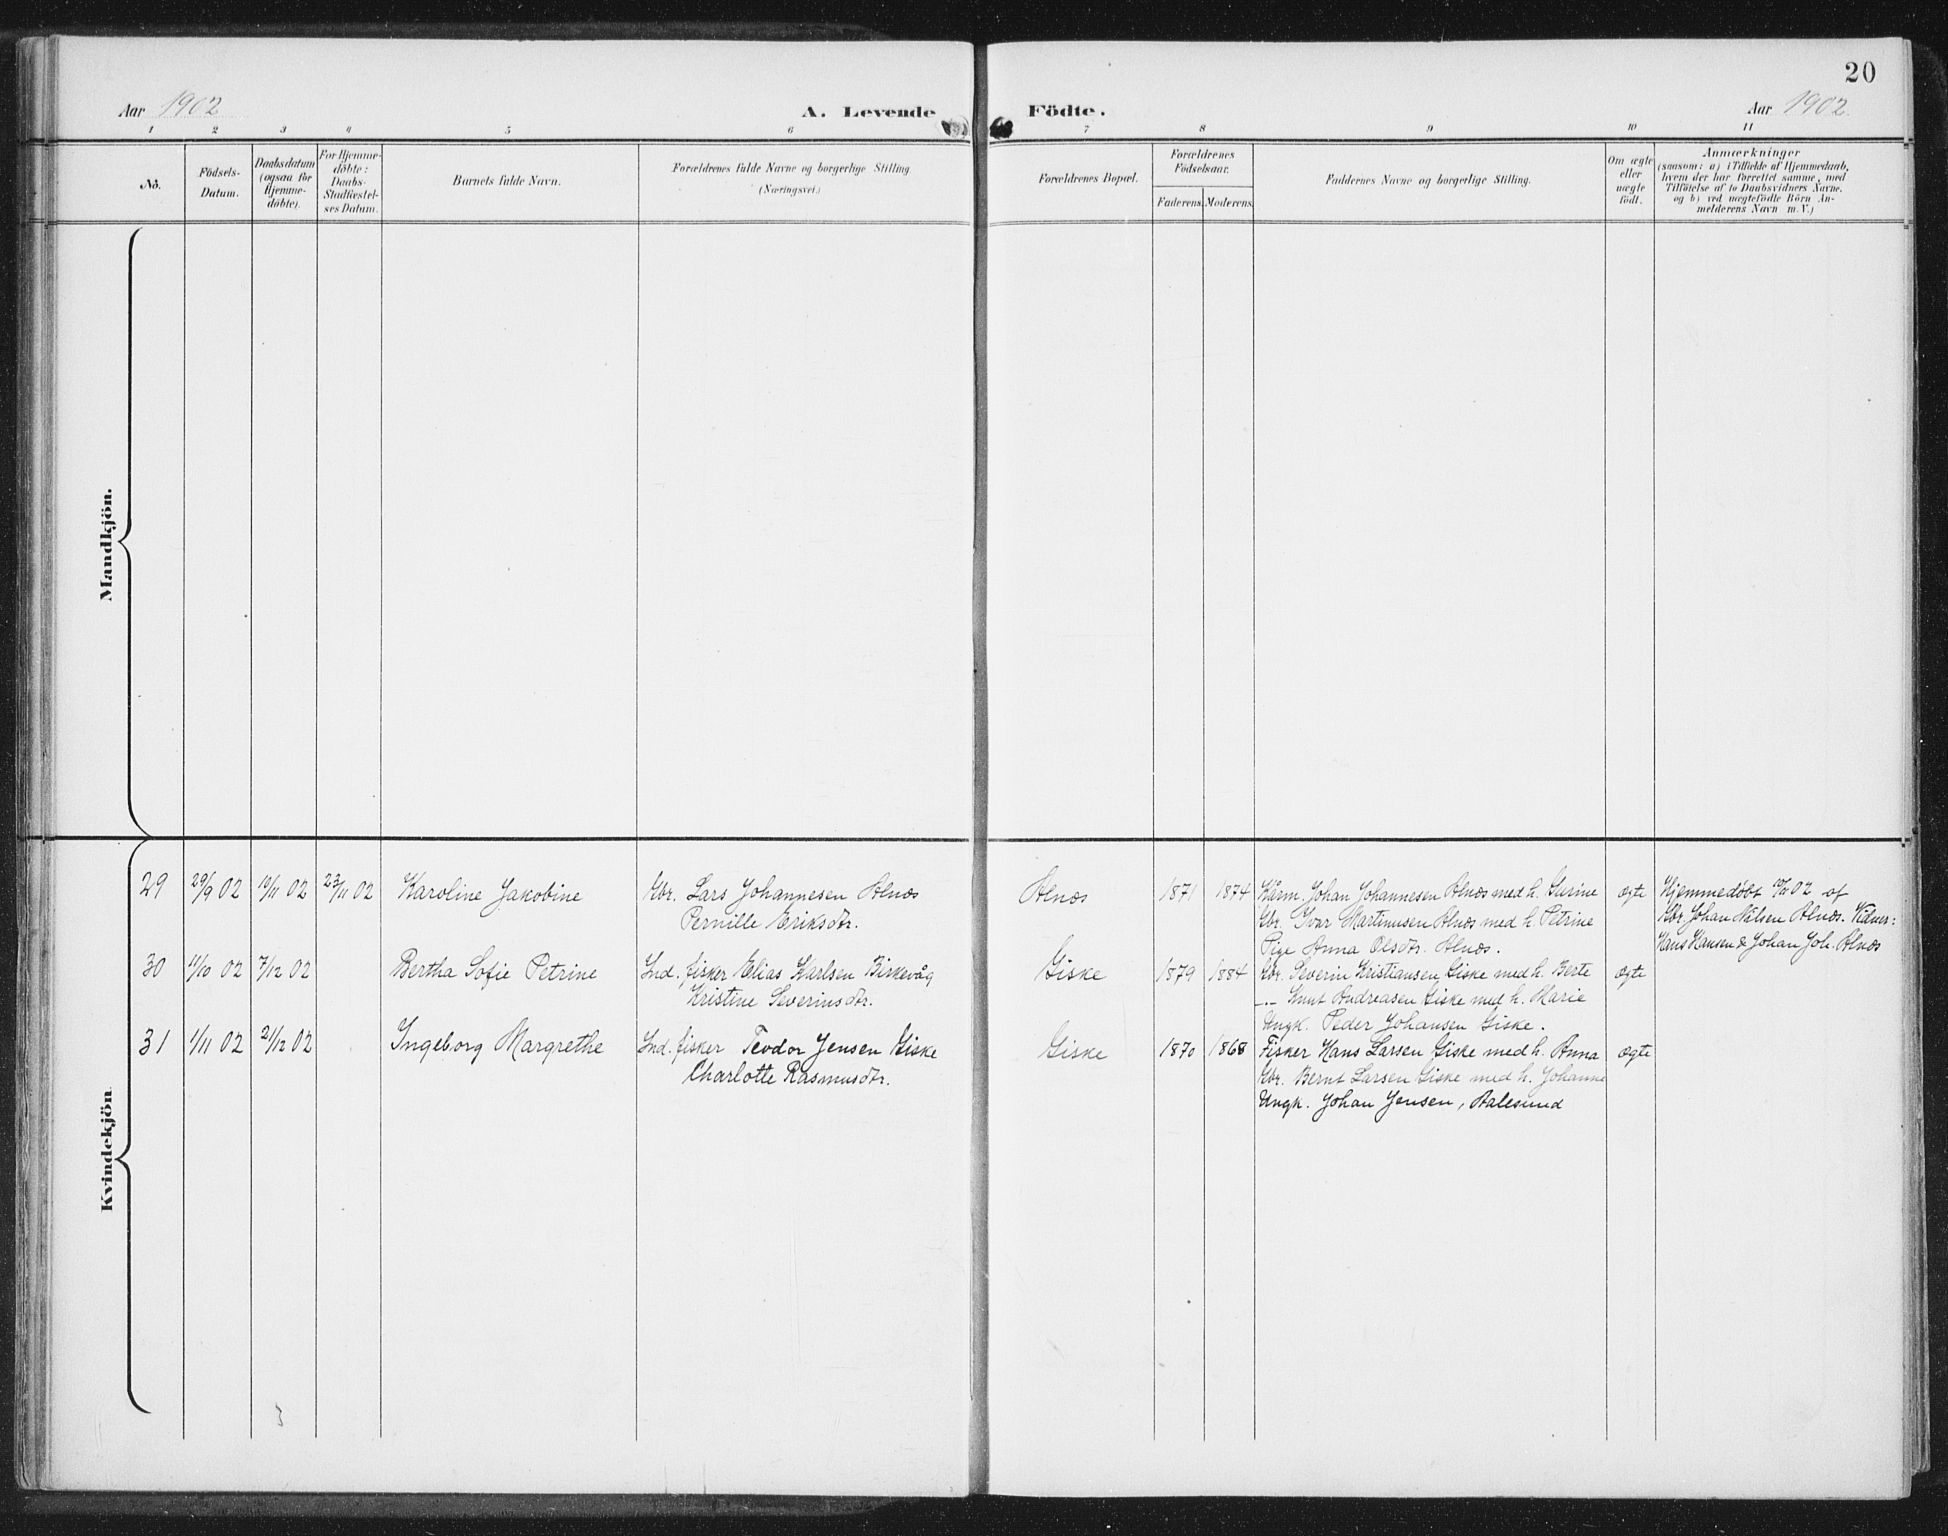 20
Aar 1902 A. Levende Födte. Aar 1902.
1 2 3 4 5 6 7 8 9 10 11
No.
Födsels-
Datum.
Daabsdatum
(ogsaa for
Hjemme-
döbte).
For Hjemme-
döbte:
Daabs-
Stadfæstel-
ses Datum.
Barnets fulde Navn.
Forældrenes fulde Navne og borgerlige Stilling
(Næringsvei.)
Forældrenes Bopæl.
Forældrenes
Födselsaar.
Faderens. Moderens.
Faddernes Navne og borgerlige Stilling.
Om ægte
eller
uægte
födt.
Anmærkninger
(saasom: a) i Tilfælde af Hjemmedaab,
hvem der har forrettet samme, med
Tilföielse af to Daabsvidners Navne.
og b) ved uægtefödte Börn An-
melderens Navn m. V.)
Mandkjön.
Kvindekjön
29 29/9 02 12/11 02 23/11 02 Karoline Jakobine
Gbr. Lars Johannesen Alnæs
Pernille Eriksdtr.
Alnæs 1871 1874
Kårm. Johan Johannesen Alnæs med h. Gurine
Gbr. Ivar Martinusen Alnæs med h. Petrine
Pige Anna Olsdtr. Alnæs.
ægte
Hjemmedøbt 12/11 02 af
Gbr. Johan Nilsen Alnæs. Vidner:
Hans Hansen & Johan Joh. Alnæs
30 11/10 02 7/12 02 Bertha Sofie Petrine
Ind. fisker Elias Karlsen Birkevåg
Kristine Severinsdtr.
Giske 1879 1884
Gbr. Severin Kristiansen Giske med h. Berte
-"- Knut Andreasen Giske med h. Marie
Ungk. Peder Johansen Giske.
ægte
31 1/11 02 21/12 02 Ingeborg Margrethe
Ind. fisker Teodor Jensen Giske
Charlotte Rasmusdtr.
Giske 1870 1868
Fisker Hans Larsen Giske med h. Anna
Gbr. Bernt Larsen Giske med h. Johanne
Ungk. Johan Jensen, Aalesund
ægte
3